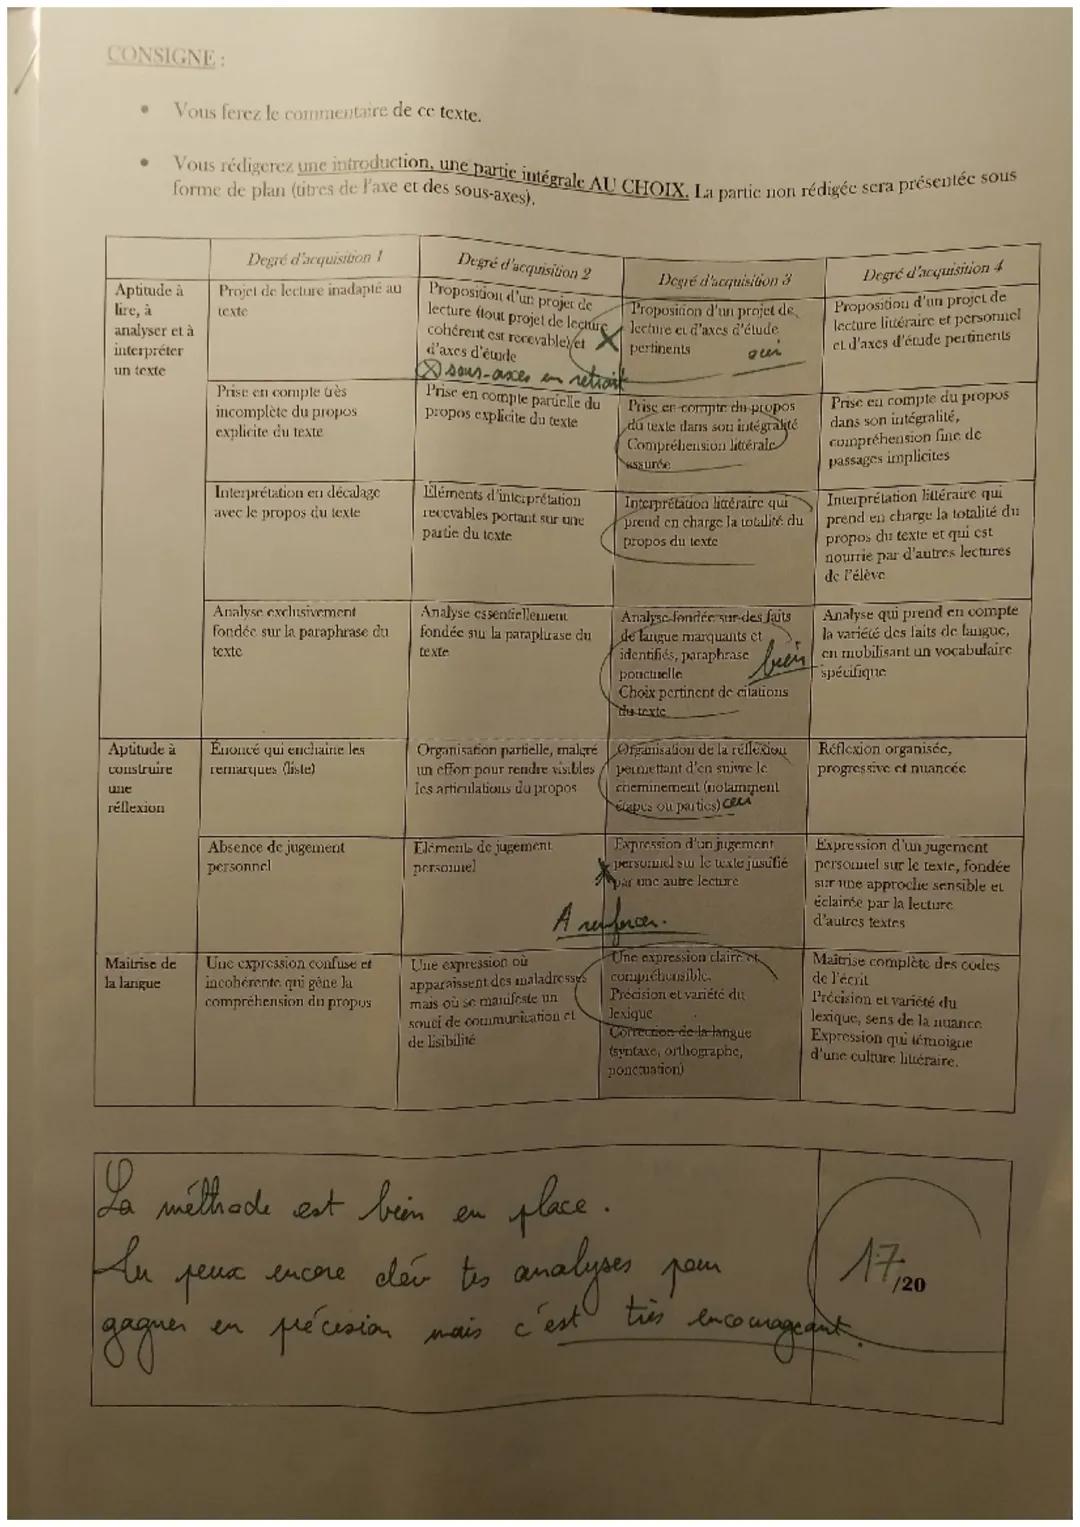 CONSIGNE :
• Vous ferez le commentaire de ce texte.
• Vous rédigerez une introduction, une partie intégrale AU CHOIX. La partie non rédigée sera présentée sous
forme de plan (titres de l'axe et des sous-axes).
Degré d'acquisition 1
Degré d'acquisition 2
Degré d'acquisition 3
Degré d'acquisition 4
Aptitude à
lire, à
analyser et à
interpréter
un texte
Projet de lecture inadapté au
texte
Proposition d'un projet de
lecture (tout projet de lecture
cohérent est recevable) et
d'axes d'étude
⊗ sous-axes en retrait
Proposition d'un projet de
lecture et d'axes d'étude
pertinents
oui
Proposition d'un projet de
lecture littéraire et personnel
et d'axes d'étude pertinents
Prise en compte très
incomplète du propos
explicite du texte
Prise en compte partielle du
propos explicite du texte
Prise en compte du propos
du texte dans son intégralité
Compréhension littérale
assurée
Prise en compte du propos
dans son intégralité,
compréhension fine de
passages implicites
Interprétation en décalage
avec le propos du texte
Eléments d'interprétation
recevables portant sur une
partie du texte
Interprétation littéraire qui
prend en charge la totalité du
propos du texte
Interprétation littéraire qui
prend en charge la totalité du
propos du texte et qui est
nourrie par d'autres lectures
de l'élève
Analyse exclusivement
fondée sur la paraphrase du
texte
Analyse essentiellement
fondée sur la paraphrase du
texte
Analyse fondée sur des faits
de langue marquants et
identifiés, paraphrase
ponctuelle
Choix pertinent de citations
du texte
bien
Analyse qui prend en compte
la variété des faits de langue,
en mobilisant un vocabulaire
spécifique
Aptitude à
construire
une
réflexion
Énoncé qui enchaine les
remarques (liste)
Organisation partielle, malgré
un effort pour rendre visibles
les articulations du propos
Organisation de la réflexion
permettant d'en suivre le
cheminement (notamment
étapes ou parties) oui
Réflexion organisée,
progressive et nuancée
Absence de jugement
personnel
Eléments de jugement
personnel
Expression d'un jugement
personnel sur le texte justifié
par une autre lecture
A renforcer.
Expression d'un jugement
personnel sur le texte, fondée
sur une approche sensible et
éclairée par la lecture
d'autres textes
Maîtrise de
la langue
Une expression confuse et
incohérente qui gêne la
compréhension du propos
Une expression où
apparaissent des maladresses
mais où se manifeste un
souci de communication et
de lisibilité
Une expression claire et
compréhensible.
Précision et variété du
lexique
Correction de la langue
(syntaxe, orthographe,
ponctuation)
Maîtrise complète des codes
de l'écrit
Précision et variété du
lexique, sens de la nuance
Expression qui témoigne
d'une culture littéraire.
La méthode est bien en place.
Tu peux encore tes analyses pour
gagner en précision mais c'est très encourageant.
17/20